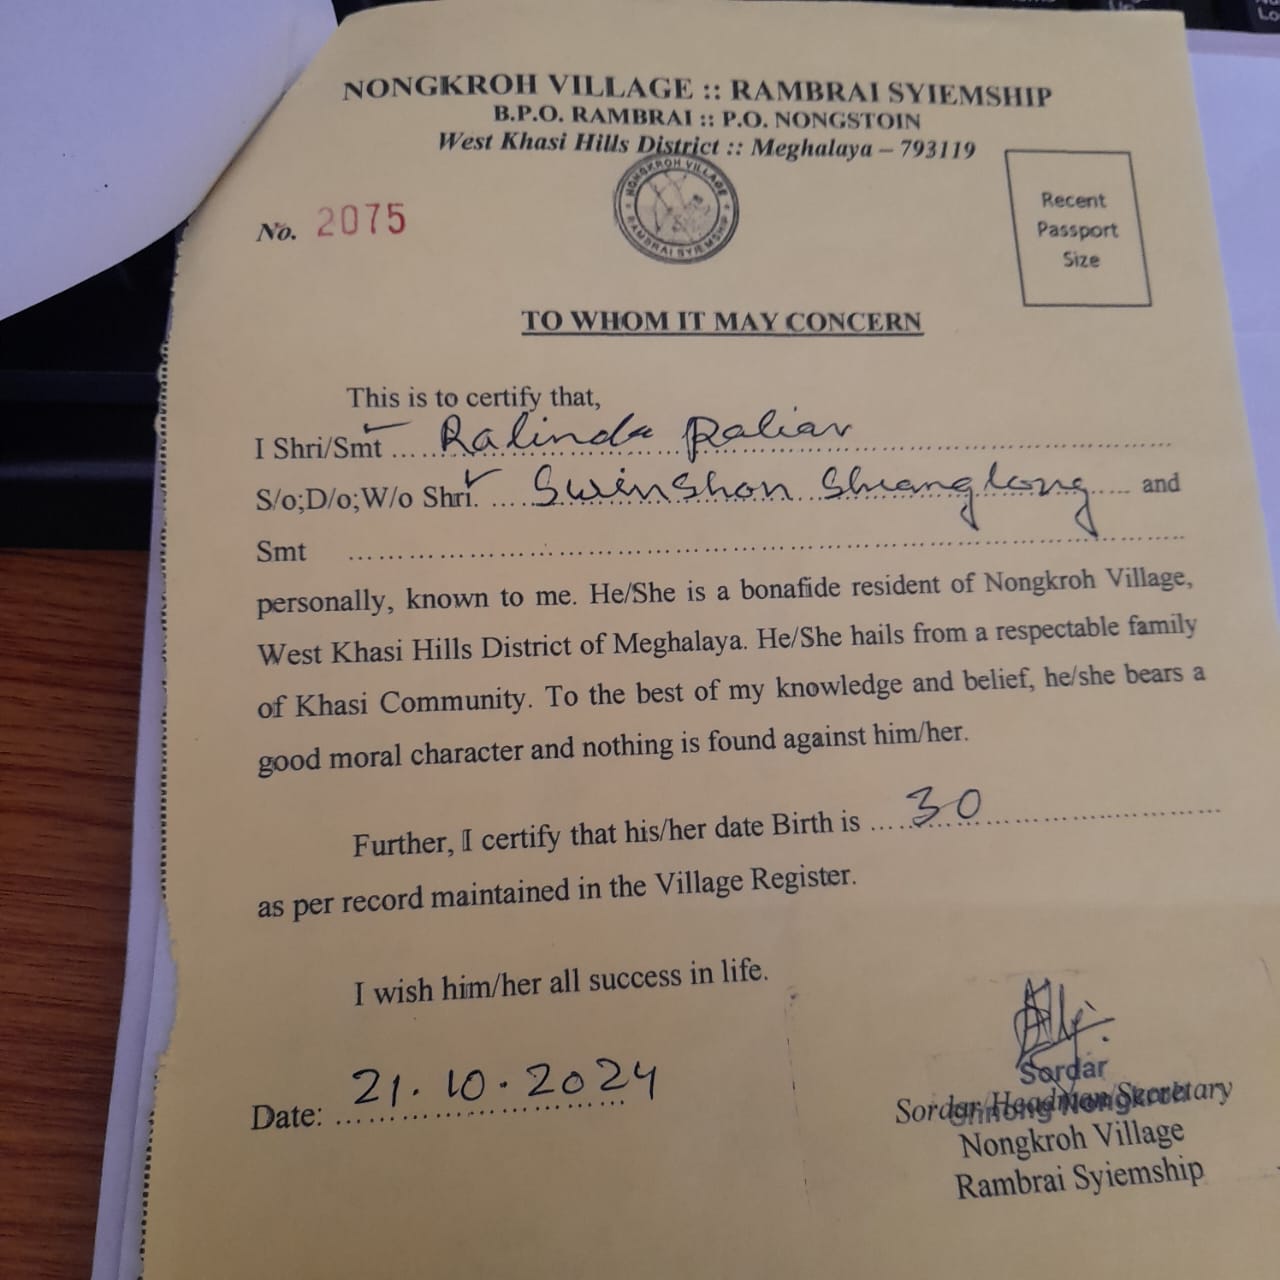 NONGKROH VILLAGE :: RAMBRAI SYIEMSHIP
B.P.O. RAMBRAI :: P.O. NONGSTOIN
West Khasi Hills District :: Meghalaya – 793119
NONGKROH VILLAGE
RAMBRAI SYIEMSHIP
No. 2075
Recent
Passport
Size
TO WHOM IT MAY CONCERN
This is to certify that,
I Shri/Smt ✓ Ralinda Raliar
S/o;D/o;W/o Shri. ✓ Swinshon Shianglong and
Smt
personally, known to me. He/She is a bonafide resident of Nongkroh Village,
West Khasi Hills District of Meghalaya. He/She hails from a respectable family
of Khasi Community. To the best of my knowledge and belief, he/she bears a
good moral character and nothing is found against him/her.
Further, I certify that his/her date Birth is 30
as per record maintained in the Village Register.
I wish him/her all success in life.
Date: 21.10.2024
Sordar
Sordar/Headman/Secretary
Nongkroh Village
Rambrai Syiemship